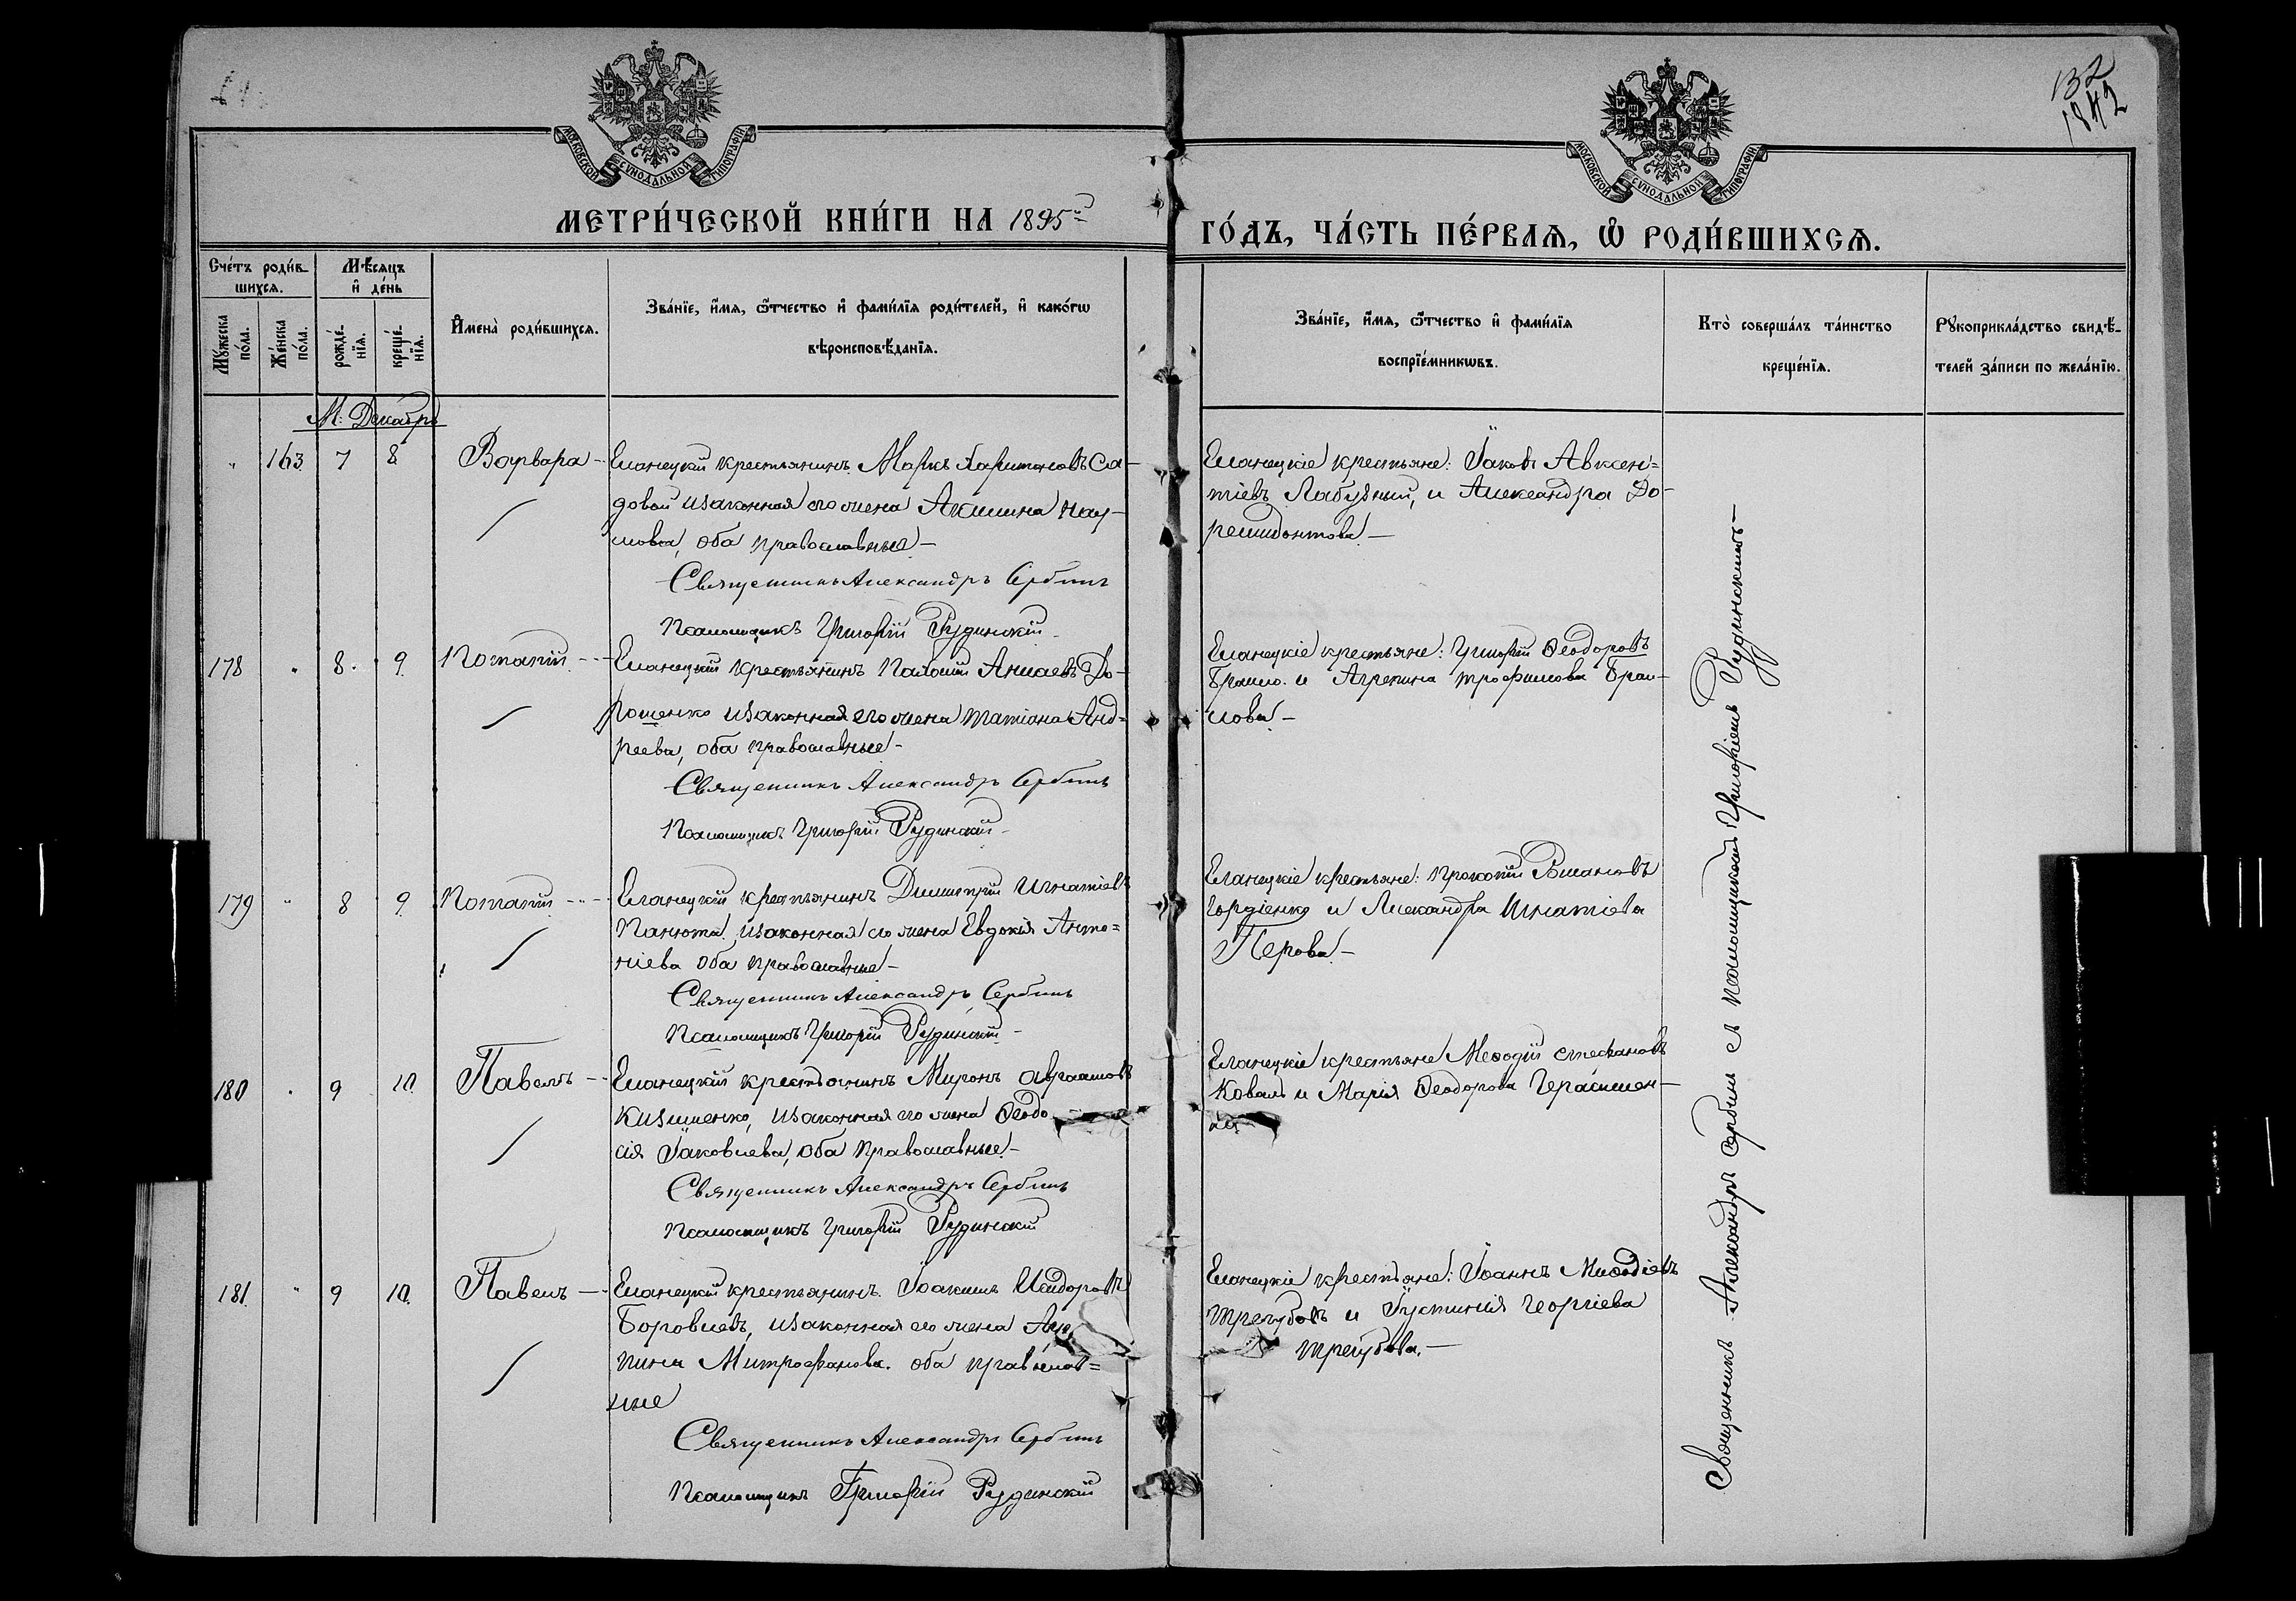 132
1842
МОСКОВСКОЙ СѴНОДАЛЬНОЙ ТИПОГРАФІИ
МОСКОВСКОЙ СѴНОДАЛЬНОЙ ТИПОГРАФІИ
МЕТРИ́ЧЕСКОЙ КНИ́ГИ НА 1895й
ГО́ДЪ, ЧА́СТЬ ПЕ́РВАѦ, Ѡ РОДИ́ВШИХСѦ.
Сче́тъ роди́в-
шихсѧ.
Мѣ́сѧцъ
и҆ де́нь
Мꙋ́жеска по́ла.
Же́нска по́ла.
рожде́-
нїѧ.
креще́-
нїѧ.
И҆мена̀ роди́вшихсѧ.
Зва́нїе, и҆́мѧ, ѻ҆́тчество и҆ фами́лїѧ роди́телей, и҆ како́гѡ
вѣроисповѣ́данїѧ.
Зва́нїе, и҆́мѧ, ѻ҆́тчество и҆ фами́лїѧ
воспрїе́мникѡвъ.
Кто̀ соверша́лъ та́инство
креще́нїѧ.
Рꙋкоприкла́дство свидѣ́-
телей за́писи по жела́нїю.
М: Декабрь
" 163 7 8 Варвара - Еланецкій крестьянинъ Маркъ Харитоновъ Са-
довой и законная его жена Акилина Нау-
мова, оба православные -
Священникъ Александръ Сербинъ
Псаломщикъ Григорій Рудинскій
Еланецкіе крестьяне: Іаковъ Авксен=
тіевъ Лабузный, и Александра До-
ремидонтова. -
178 " 8 9 Потапій - Еланецкій крестьянинъ До-
рошенко и законная его жена Татіана Анд=
реева, оба православные -
Священникъ Александръ Сербинъ
Псаломщикъ Григорій Рудинскій
Еланецкіе крестьяне: Григорій Ѳеодоровъ
и Агрепина Трофимова
лова -
179 " 8 9 Потапій - Еланецкій крестьянинъ Димитрій Игнатіевъ
Панюта, и законная его жена Евдокія Анто=
ніева оба православные -
Священникъ Александръ Сербинъ
Псаломщикъ Григорій Рудинскій -
Еланецкіе крестьяне: Прокопій Романовъ
Гордіенко и Александра Игнатіева
Перова. -
180 " 9 10 Павелъ - Еланецкій крестьянинъ Миронъ Авраамовъ
и законная его жена Ѳеодо
сія Іаковлева, оба православные. -
Священникъ Александръ Сербинъ
Псаломщикъ Григорій Рудинскій
Еланецкіе крестьяне Меѳодій Стефановъ
Коваль и Марія Ѳеодорова Герасимен-
ко
181 " 9 10 Павелъ - Еланецкій крестьянинъ Іоакимъ Исидоровъ
Боровлевъ, и законная его жена
пина Митрофанова. оба православ=
ные
Священникъ Александръ Сербинъ
Псаломщикъ Григорій Рудинскій
Еланецкіе крестьяне: Іоаннъ Меѳодіевъ
Трегубовъ и Іустинія Георгіева
Трегубова. -
Священникъ Александръ Сербинъ съ псаломщикомъ Григоріемъ Рудинскимъ -